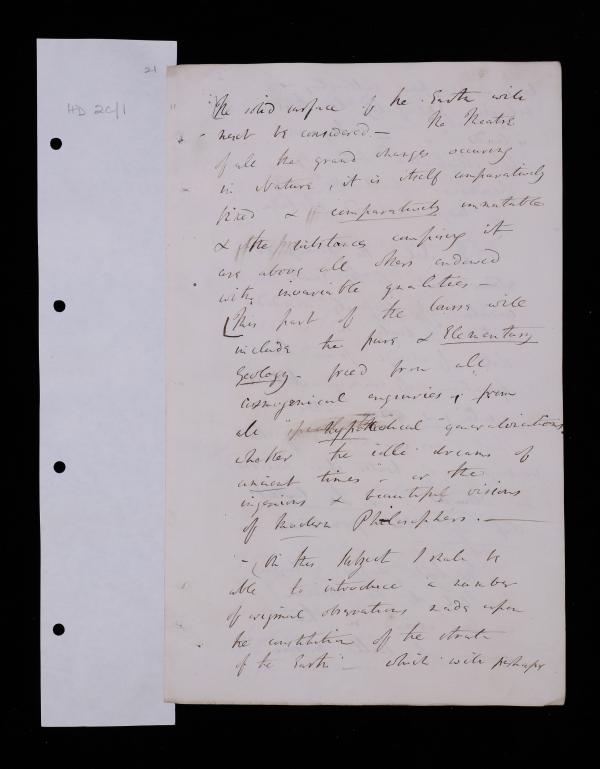 21
HD 2C/1
The solid surface of the Earth will
next be considered. — The Theatre
of all the grand changes occuring
in Nature, it is itself comparatively
fixed & comparatively immutable
& the substances composing it
are above all others endowed
with invariable qualities —
[This part of the course will
include the pure & Elementary
Geology - freed from all
cosmogenical enquiries; from
all hypothetical generalizations
whether the idle dreams of
ancient times - or the
ingenious & beautiful visions
of Modern Philosophers. —
- On this subject I shall be
able to introduce a number
of original observations made upon
the constitution of the strata
of the Earth - which will perhaps